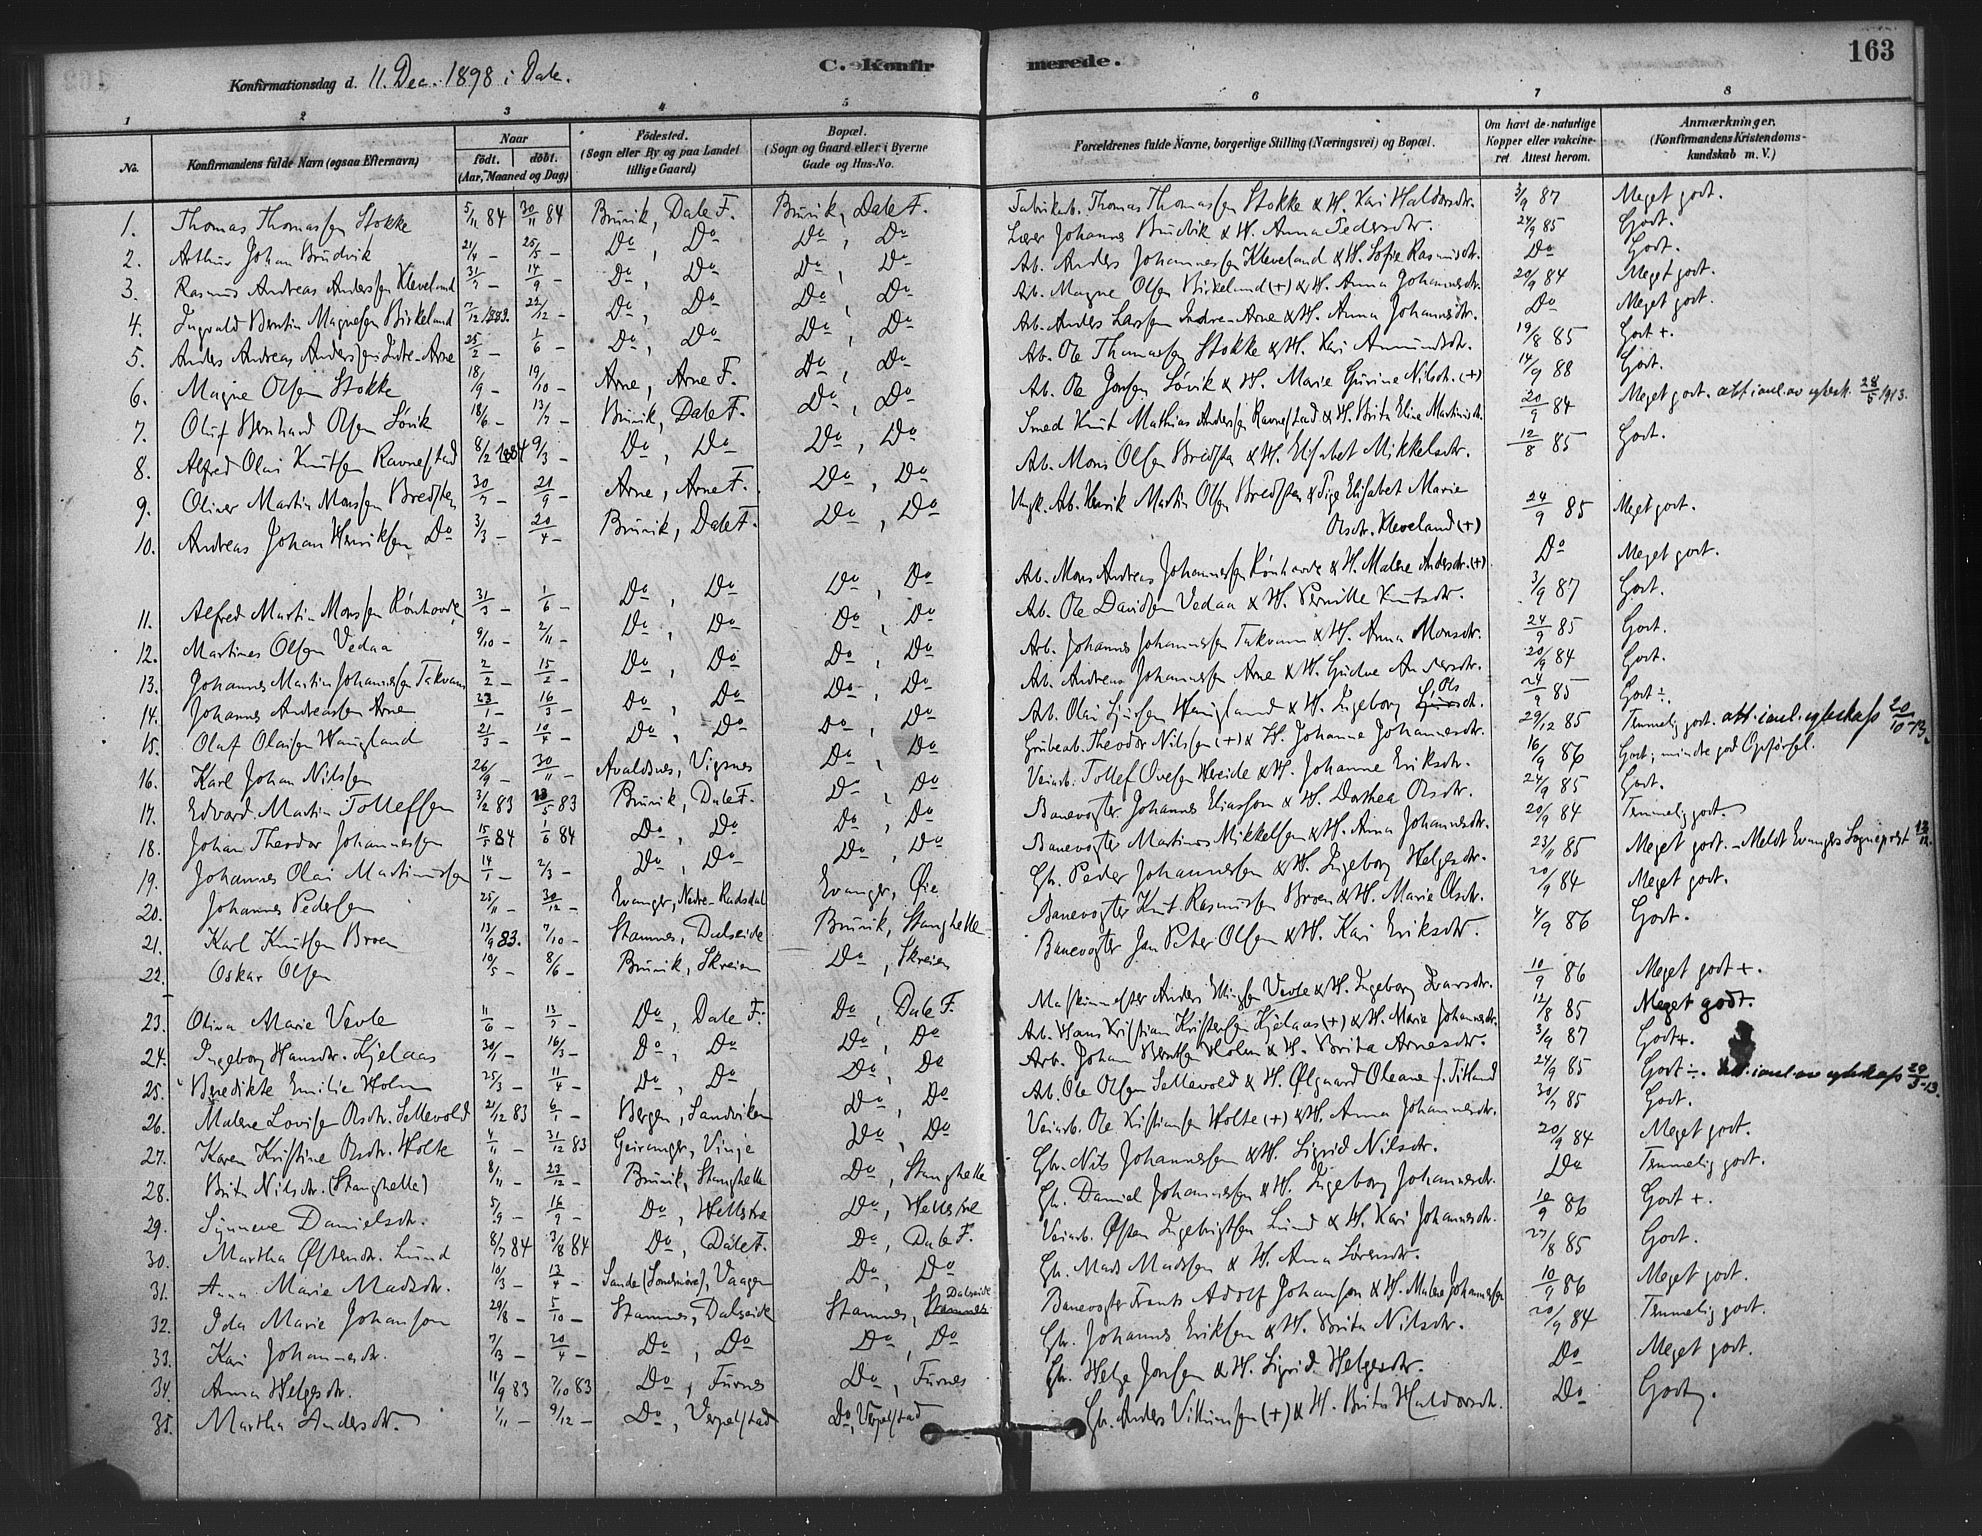 163
Konfirmationsdag d. 11. Dec. 1898 i Dale.
C. Konfirmerede.
1 2 3 4 5 6 7 8
No.
Konfirmandens fulde Navn (ogsaa Efternavn)
Naar
født. døbt.
(Aar, Maaned og Dag)
Fødested.
(Sogn eller By og paa Landet
tillige Gaard)
Bopæl.
(Sogn og Gaard eller i Byerne
Gade og Hus-No.
Forældrenes fulde Navne, borgerlige Stilling (Næringsvei) og Bopæl.
Om havt de naturlige
Kopper eller vakcine-
ret. Attest herom.
Anmærkninger.
(Konfirmandens Kristendoms-
kundskab m. V.)
1. Thomas Thomassen Stokke 5/11 84 30/11 84 Bruvik, Dale F. Bruvik, Dale F. Fabrikab. Thomas Thomassen Stokke & H. Kari Haldorsdtr. 3/9 87 Meget godt.
2. Arthur Johan Brudvik 21/4 – 25/5 – Do, Do Do, Do Lærer Johannes Brudvik & H. Anna Pedersdtr. 24/9 85 Godt.
3. Rasmus Andreas Anderssen Kleveland 31/7 – 14/9 – Do, Do Do, Do Ab. Anders Johannessen Kleveland & H. Sofie Rasmusdtr. Do Godt.
4. Ingvald Berntin Magnesen Birkeland 7/12 1883. 22/12 – Do, Do Do, Do Ab. Magne Olsen Birkeland (+) & H. Anna Johannesdtr. 20/9 84 Meget godt.
5. Anders Andreas Anderssen Indre-Arne 25/2 – 1/6 – Do, Do Do, Do Ab. Anders Larssen Indre-Arne & H. Anna Johannesdtr. Do Meget godt.
6. Magne Olsen Stokke 18/9 – 19/10 – Arne, Arne F. Do, Do Ab. Ole Thomassen Stokke & H. Kari Amundsdtr. 19/8 85 Godt +.
7. Oluf Bernhard Olsen Løvik 18/6 – 13/7 – Bruvik, Dale F. Do, Do Ab. Ole Jonsen Løvik & H. Marie Gurine Nilsdtr. (+) 14/9 88 Godt.
8. Alfred Olai Knutsen Ravnestad 8/2 1884 9/3 – Do, Do Do, Do Smed Knut Mathias Andersen Ravnestad & H. Brita Elina Martinsdtr. 20/9 84 Meget godt. att. i anl. av utfl. 28/5 1913.
9. Oliver Martin Monssen Bredsten 30/7 – 21/9 – Arne, Arne F. Do, Do Ab. Mons Olsen Bredsten & H. Elisabet Mikkelsdtr. 12/8 85 Godt.
10. Andreas Johan Henriksen Do 3/3 – 20/4 – Bruvik, Dale F. Do, Do Ungk. Ab. Henrik Martin Olsen Bredsten & Pige Elisabet Marie
Olsdtr. Kleveland (+) 24/9 85 Meget godt.
11. Alfred Martin Monssen Rønhovde 31/3 – 1/6 – Do, Do Do, Do Ab. Mons Andreas Johannessen Rønhovde & H. Malene Andersdtr. (+) Do Meget godt.
12. Martines Olsen Vedaa 9/10 – 2/11 – Do, Do Do, Do Ab. Ole Davidsen Vedaa & H. Pernille Knutsdtr. 3/9 87 Godt.
13. Johannes Martin Johannessen Takvam 2/2 – 15/2 – Do, Do Do, Do Arb. Johannes Johannessen Takvam & H. Anna Monsdtr. 24/9 85 Godt.
14. Johannes Andreassen Arne 23/1 – 16/3 – Do, Do Do, Do Ab. Andreas Johannessen Arne & H. Gudve Andersdtr. 20/9 84 Godt.
15. Olaf Olaisen Haugland 21/3 – 10/4 – Do, Do Do, Do Ab. Olai Haugland & H. Ingeborg Olsdtr. 24/9 85 Godt ÷
16. Karl Johan Nilssen 26/9 – 30/11 – Avaldsnes, Vigsnes Do, Do Grubeab. Theodor Nilssen (+) & H. Johanne Johannesdtr. 29/12 85 Temmelig godt. att. i anl. 20/10-13.
17. Edvard Martin Tollefsen 3/2 83 13/5 83 Bruvik, Dale F. Do, Do Veiarb. Tollef Ovesen Hereide & H. Johanne Eriksdtr. 16/9 86 Godt; mindre god Opførsel.
18. Johan Theodor Johannessen 15/5 84 1/6 84 Do, Do Do, Do Banevogter Johannes Eliasson & H. Dorthea Olsdtr. 24/9 85 Godt.
19. Johannes Olai Martinussen 14/1 – 2/3 – Do, Do Do, Do Banevogter Martinus Mikkelsen & H. Anna Johannesdtr. 20/9 84 Temmelig godt.
20. Johannes Pedersen 25/11 – 30/12 – Evanger, Nedre-Rasdal Evanger, Øie Gb. Peder Johannessen & H. Ingeborg Helgesdtr. 23/11 85 Meget godt. – Meldt Evangers Sogneprest 13/12.
21. Karl Knutsen Broen 13/9 83. 7/10 – Stamnes, Dalseide Bruvik, Stanghelle Banevogter Knut Rasmussen Broen & H. Marie Olsdtr. 20/9 84 Meget godt.
22. Oskar Olsen 10/5 – 8/6 – Bruvik, Skreien Do, Skreien Banevogter Jan Peter Olsen & H. Kari Eriksdtr. 4/9 86 Godt.
23. Olina Marie Vevle 11/6 – 13/7 – Do, Dale F. Do, Dale F. Maskinmester Anders Vevle & H. Ingeborg Ivarsdtr. 10/9 86 Meget godt +.
24. Ingeborg Hansdtr. Kjelaas 30/1 – 16/3 – Do, Do Do, Do Ab. Hans Kristian Kristensen Kjelaas (+) & H. Marie Johannesdtr. 12/8 85 Meget godt.
25. Benedikte Emilie Holm 25/3 – 11/4 – Do, Do Do, Do Arb. Johan Berntsen Holm & H. Brita Arnesdtr. 3/9 87 Godt +.
26. Malene Lovise Olsdtr. Sellevold 21/12 83 6/1 – Bergen, Sandviken Do, Do Ab. Ole Olsen Sellevold & H. Ølgaard Oleane f. Titland 24/9 85 Godt ÷. att. i anl. av 20/3-13.
27. Karen Kristine Olsdtr. Holte 4/11 – 31/12 83 Geiranger, Vinje Do, Do Veiarb. Ole Kristiansen Holte (+) & H. Anna Johannesdtr. 30/7 85 Godt.
28. Brita Nilsdtr. (Stanghelle) 8/11 – 23/12 – Bruvik, Stanghelle Do, Stanghelle Gb. Nils Johannessen & H. Sigrid Nilsdtr. 20/9 84 Meget godt.
29. Synneve Danielsdtr. 5/9 – 16/9 – Do, Hellstre Do, Hellstre Gb. Daniel Johannessen & H. Ingeborg Johannesdtr. Do Temmelig godt.
30. Martha Østensdtr. Lund 8/7 84 3/8 84 Do, Dale F. Do, Dale F. Veiarb. Østen Ingebrigtsen Lund & H. Kari Johannesdtr. 10/9 86 Godt +.
31. Anna Marie Madsdtr. 10/3 – 13/4 – Sande (Søndmøre), Vaagen Do, Do Gb. Mads Madssen & H. Ane Sørensdtr. 27/8 85 Godt.
32. Ida Marie Johanson 29/8 – 5/10 – Stamnes, Dalseide Stamnes, Dalseide Banevogter Frants Adolf Johanson & H. Malene Johannessen 10/9 86 Meget godt.
33. Kari Johannesdtr. 7/13 – 20/4 – Do, Do Do, Do Gb. Johannes Eriksen & H. Brita Nilsdtr. 20/9 84 Temmelig godt.
34. Anna Helgesdtr. 11/9 83 7/10 83 Do, Furnes Do, Furnes Gb. Helge Jonsen & H. Sigrid Helgesdtr. Do Meget godt.
35. Martha Andersdtr. 1/11 – 9/12 – Do, Verpelstad Do, Verpelstad Gb. Anders Villumsen (+) & H. Brita Haldorsdtr. Do Godt.